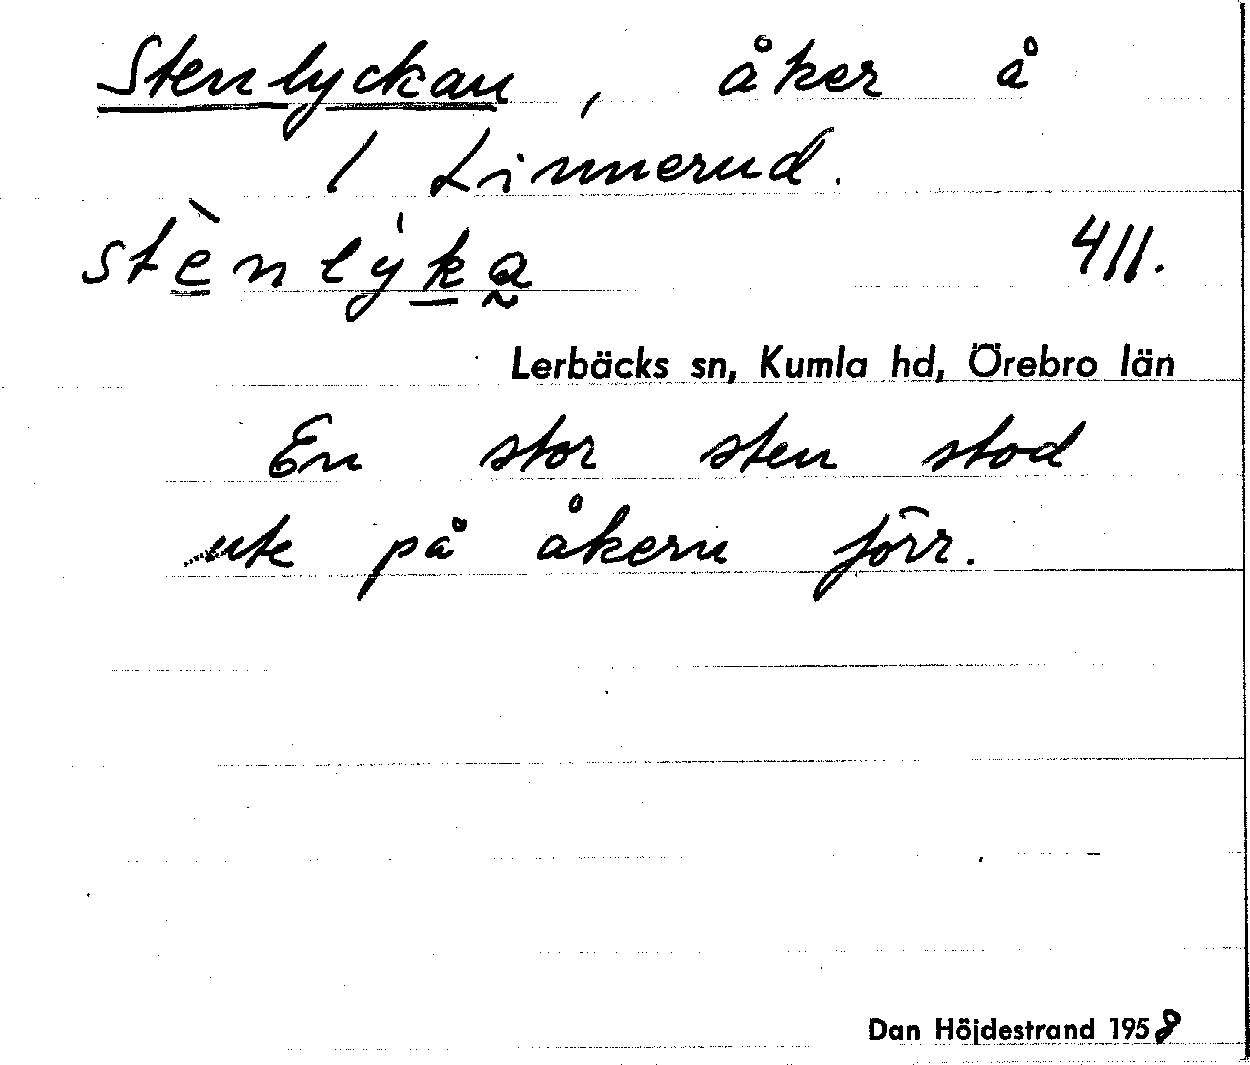 Stenlyckan, åker å
1 Linnerud.
stènlýka 411.
Lerbäcks sn, Kumla hd, Örebro län
En stor sten stod
ute på åkern förr.
Dan Höjdestrand 1958